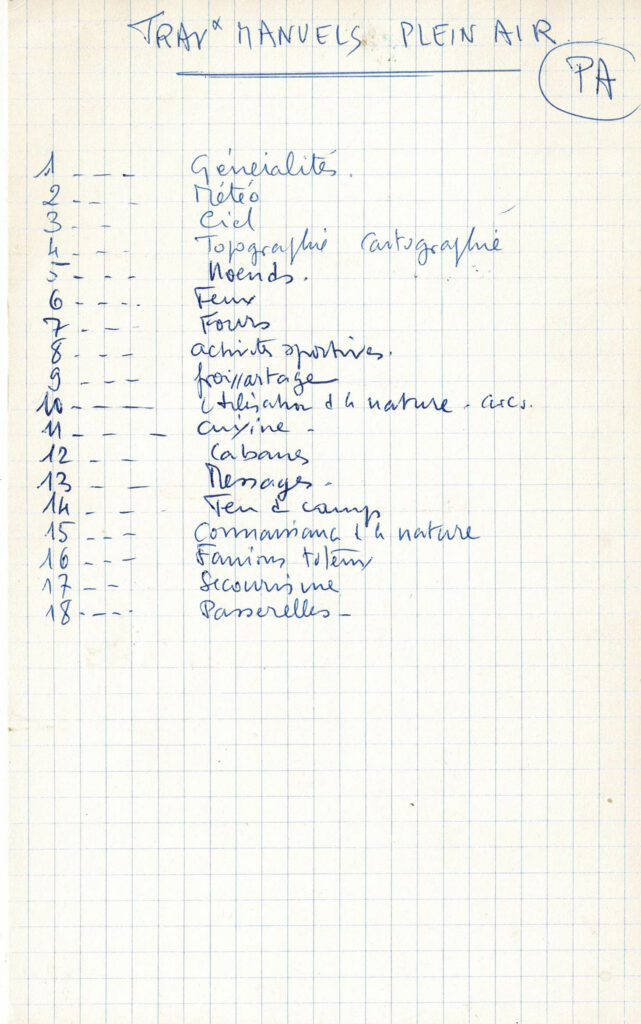 TRAVX MANUELS PLEIN AIR
PA
1 --- Généralités.
2 --- Météo
3 - - Ciel
4 - - Topographie Cartographie
5 --- Noeuds.
6 ---- Feux
7 --- Fours
8 --- activités sportives.
9 --- froissartage
10 ---- Utilisation d la nature - arcs.
11 --- cuisine -
12 --- Cabanes
13 --- Messages -
14 -- Feu d camp
15 --- Connaissance d la nature
16 --- Fanions totems
17 -- Secourisme
18 ---- Passerelles -